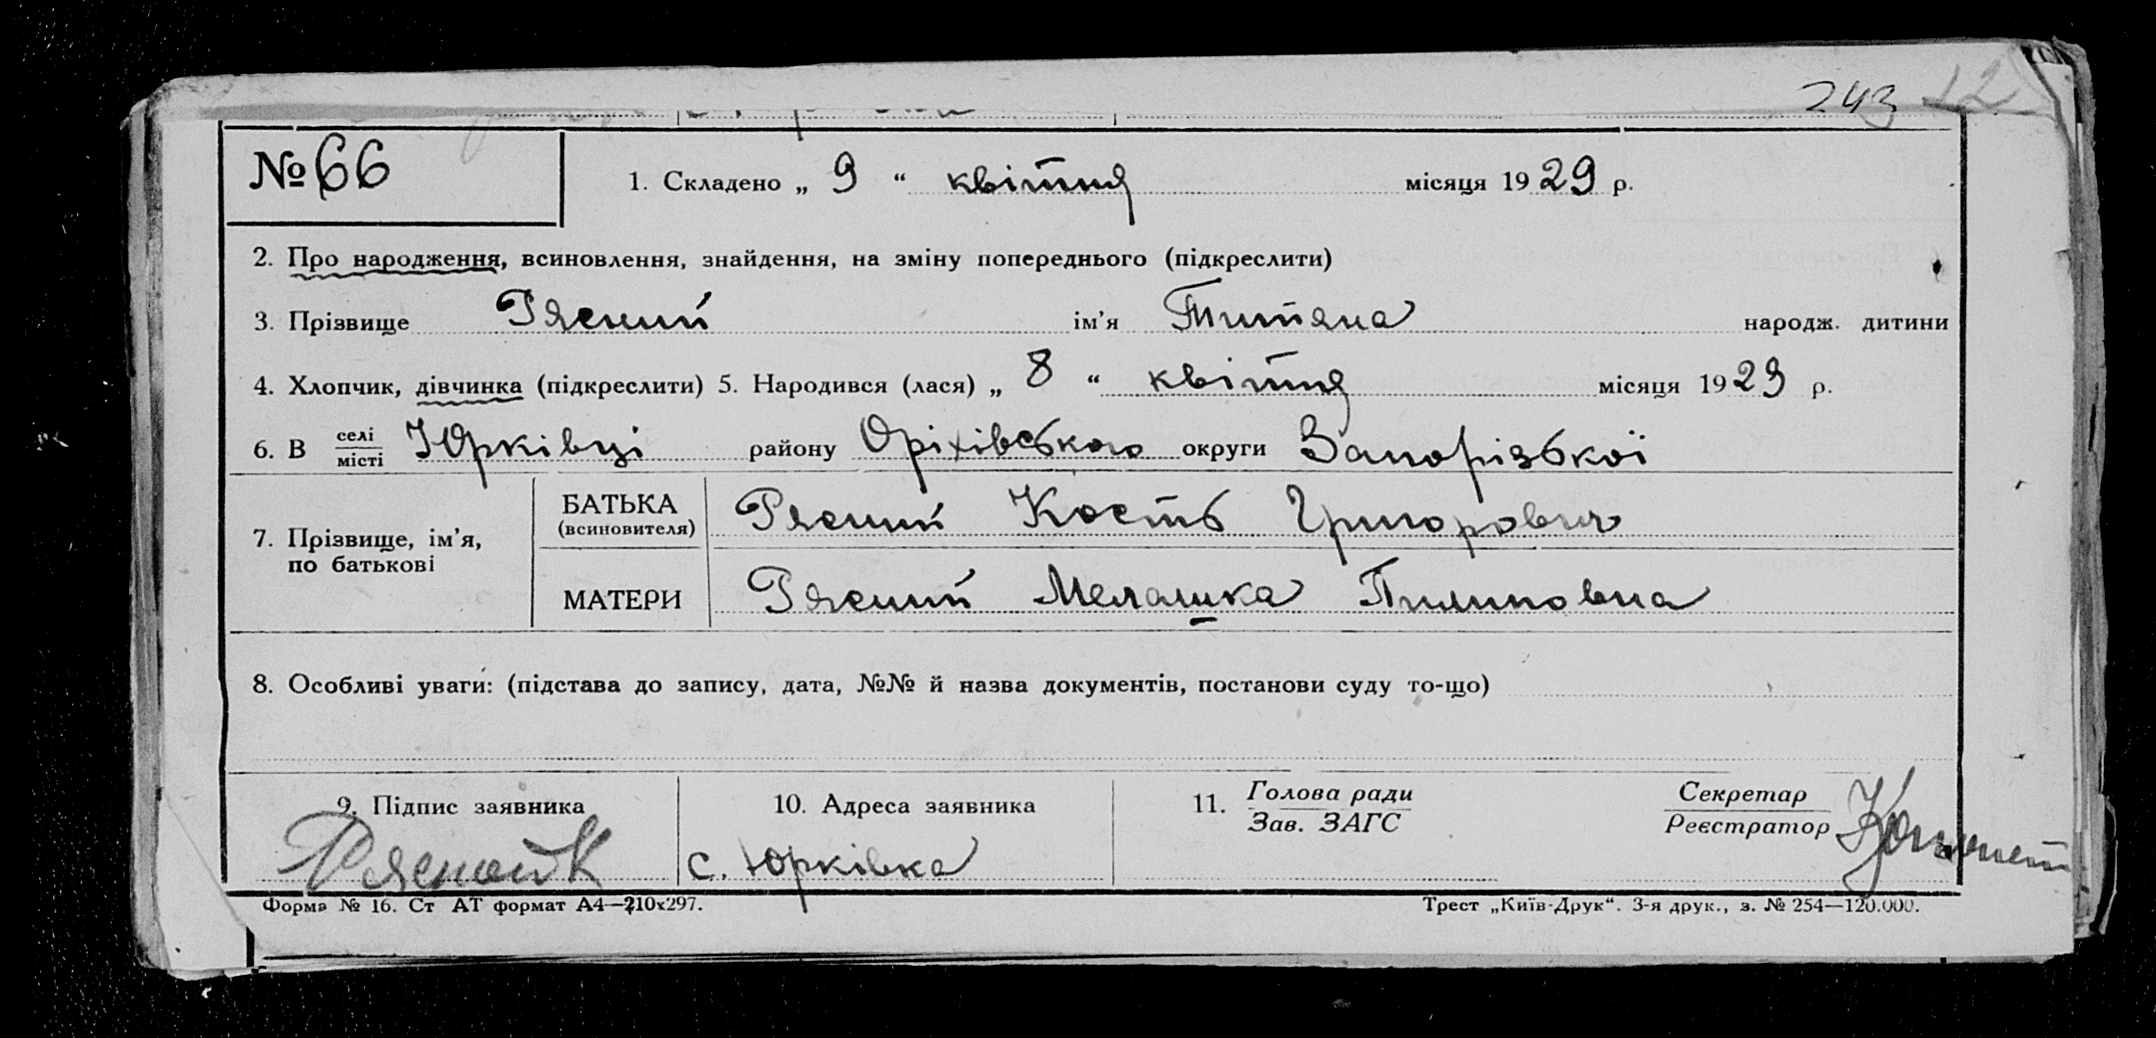 243 12
№ 66
1. Складено „ 9 “ квітня місяця 1929 р.
2. Про народження, всиновлення, знайдення, на зміну попереднього (підкреслити)
3. Прізвище Рясний ім’я Титяна народж. дитини
4. Хлопчик, дівчинка (підкреслити) 5. Народився (лася) „ 8 “ квітня місяця 1929 р.
6. В селі місті Юрківці району Оріхівського округи Запорізької
7. Прізвище, ім’я, по батькові
БАТЬКА (всиновителя) Рясний Кость Григорович
МАТЕРИ Рясний Мелашка Пилиповна
8. Особливі уваги: (підстава до запису, дата, №№ й назва документів, постанови суду то-що)
9. Підпис заявника
10. Адреса заявника
11. Голова ради Зав. ЗАГС
Секретар Реєстратор
с. Юрківка
Форма № 16. Ст АТ формат А4—210х297.
Трест „Київ-Друк“. 3-я друк., з. № 254—120.000.